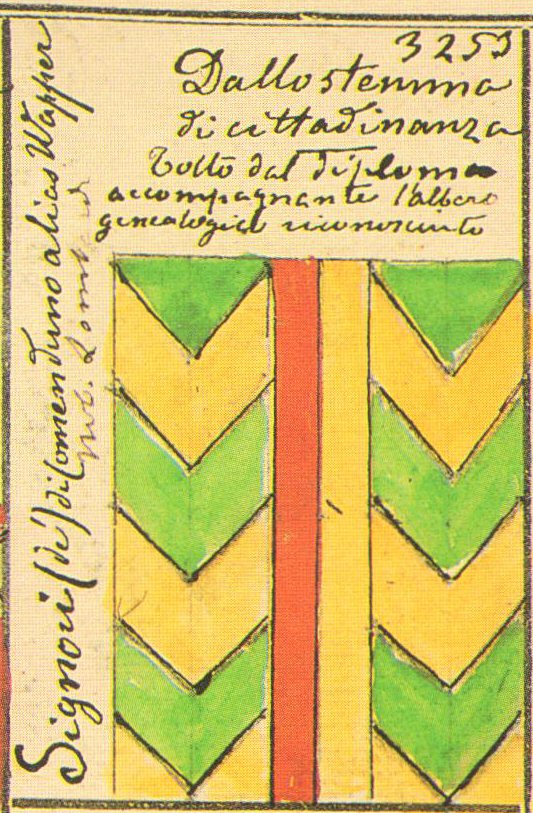 3253
Dallo stemma
di cittadinanza
tolto dal diploma
accompagnante l'albero
genealogico riconosciuto
Signori (de') di Comenduno alias Wapper
nob. Lomb.